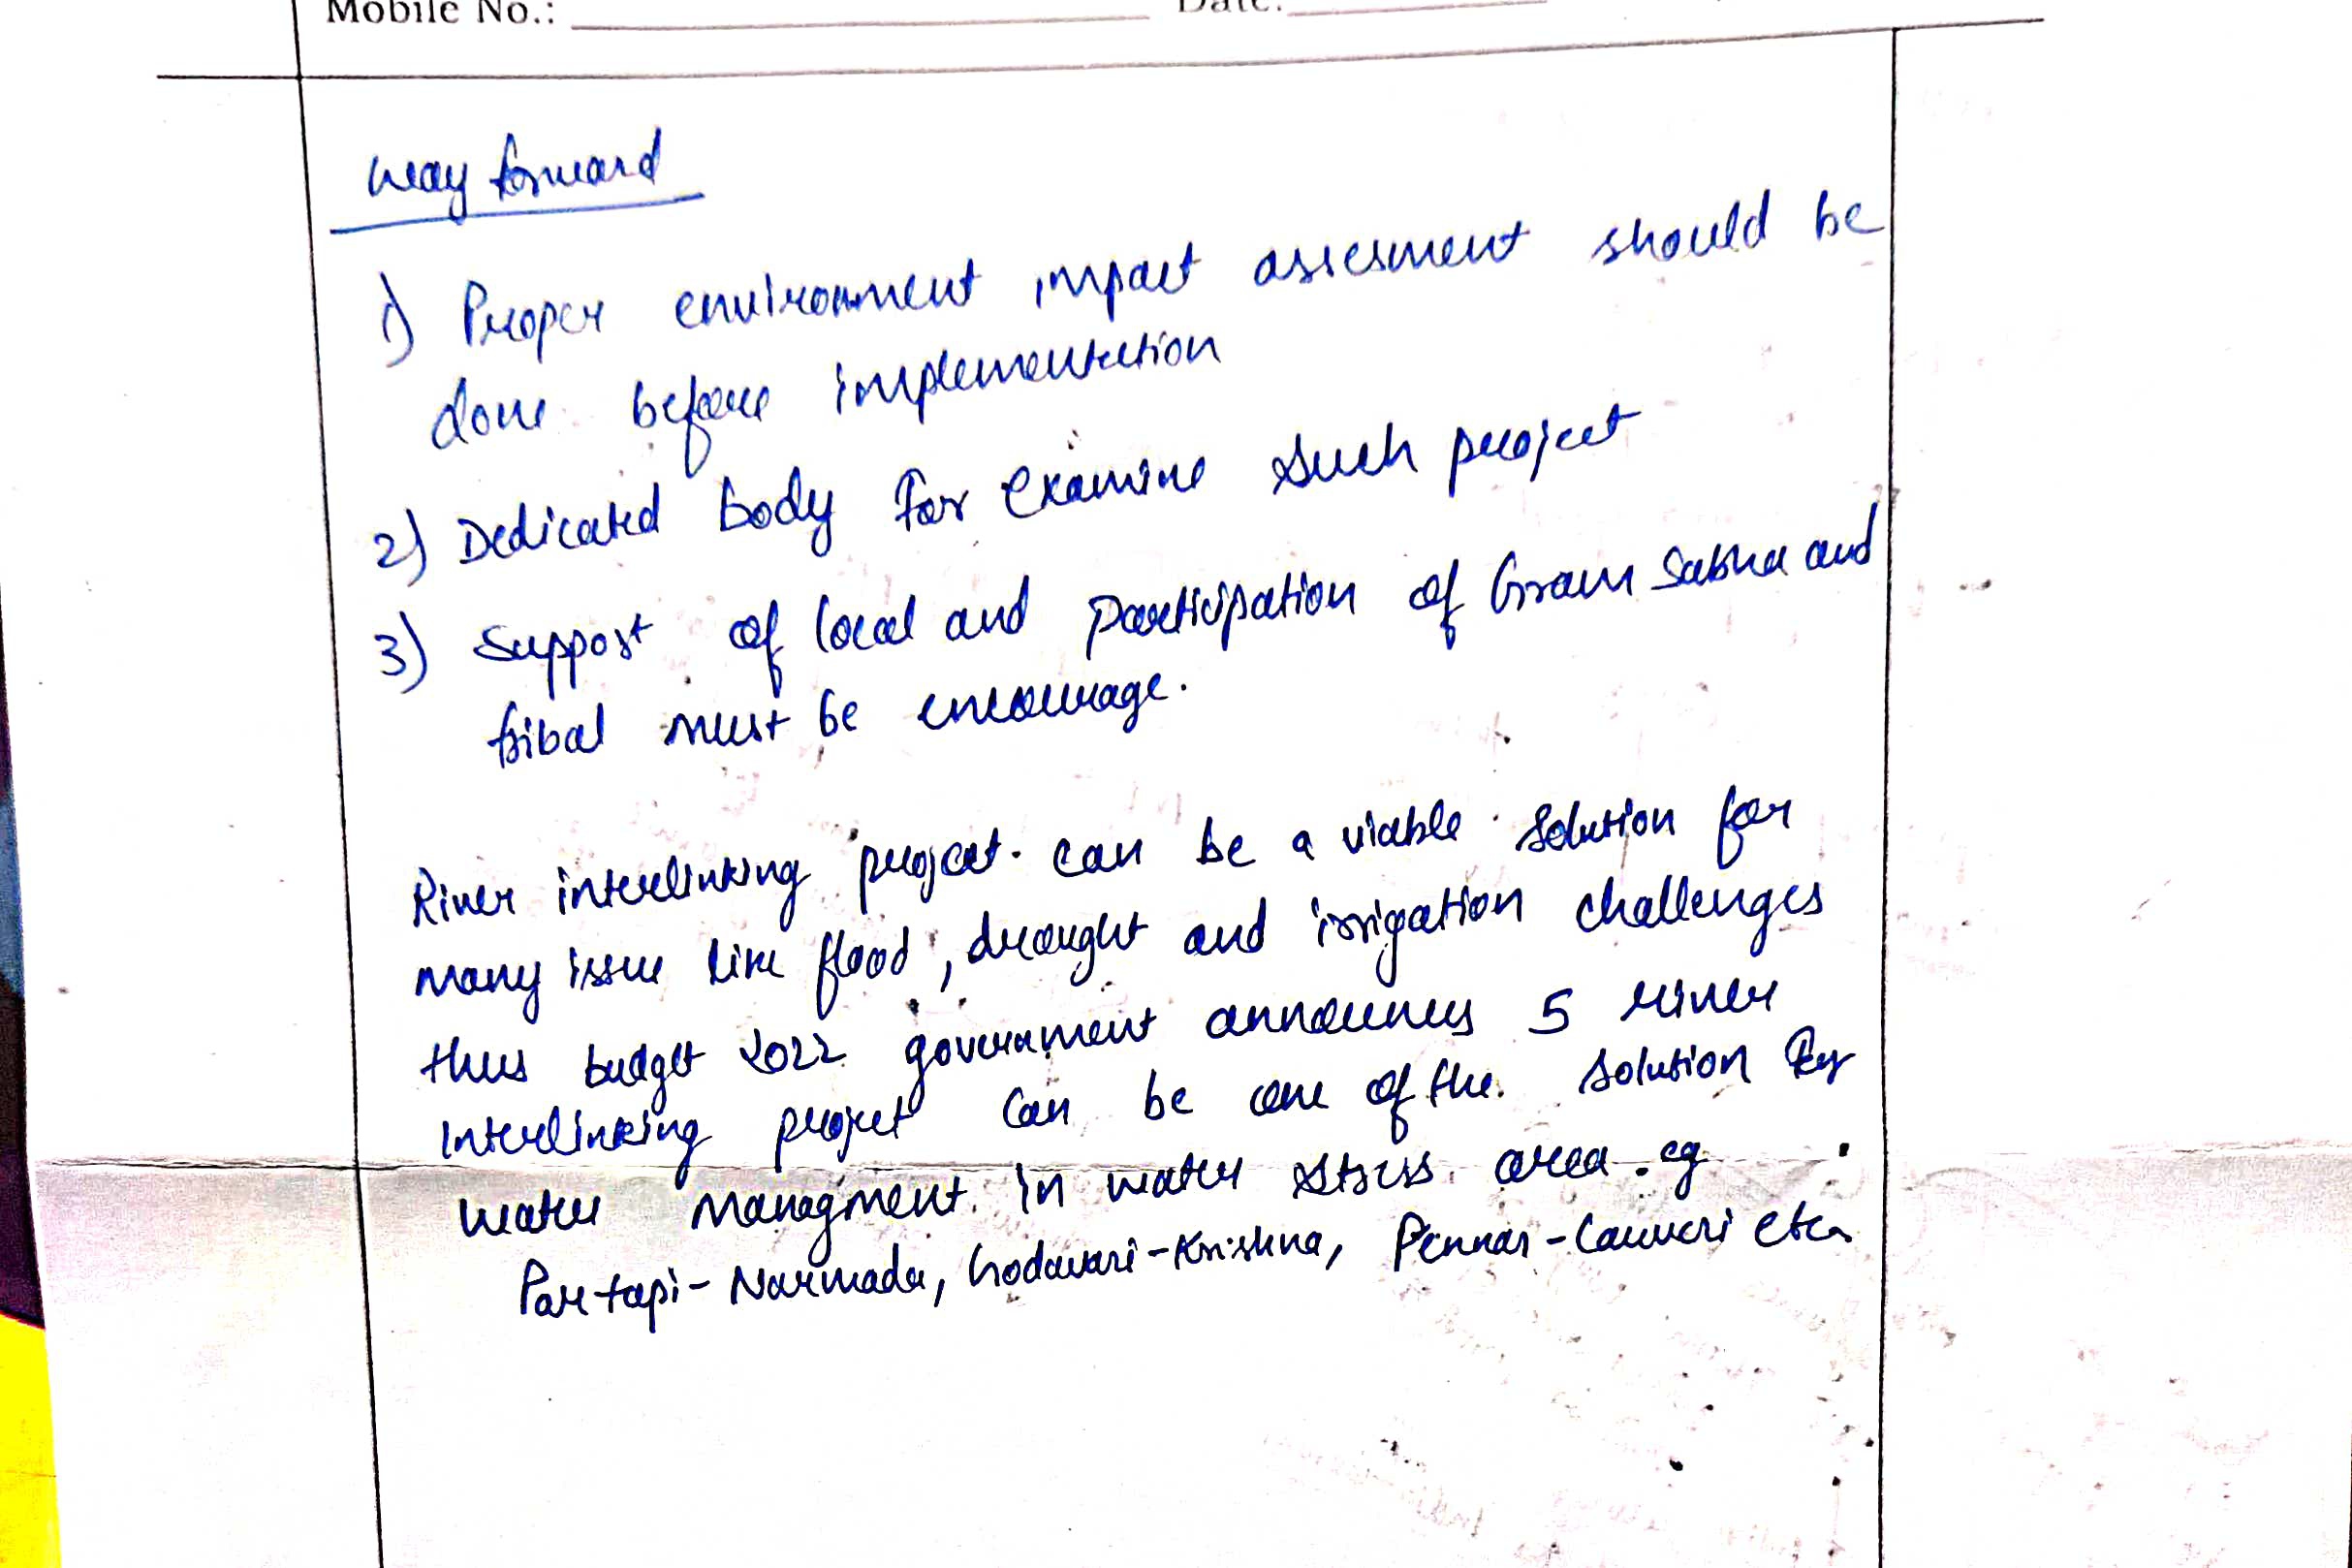 Mobile No.: Date:
way forward
1) Proper environment impact assesment should be
done before implementation
2) Dedicated body for examine such project
3) Support of local and participation of Gram Sabha and
tribal must be encourage.
River interlinking project can be a viable solution for
many issue like flood, drought and irrigation challenges
thus budget 2022 government announces 5 river
interlinking project can be one of the solution for
water managment in water stress area. eg
Par-tapi-Narmada, Godavari-Krishna, Pennar-Cauveri etc.